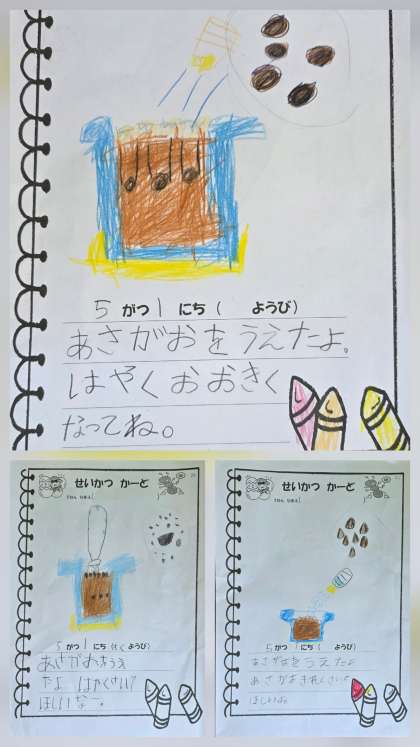 5 がつ 1 にち( ようび)
あさがおをうえたよ。
はやくおおきく
なってね。
せいかつ かーど
5 がつ 1 にち(もく ようび)
あさがおをうえ
たよ はやく
ほしいな。
せいかつ かーど
5 がつ 1 にち( ようび)
あさがおをうえたよ
あさがおきれくさいよ
ほしいよ。